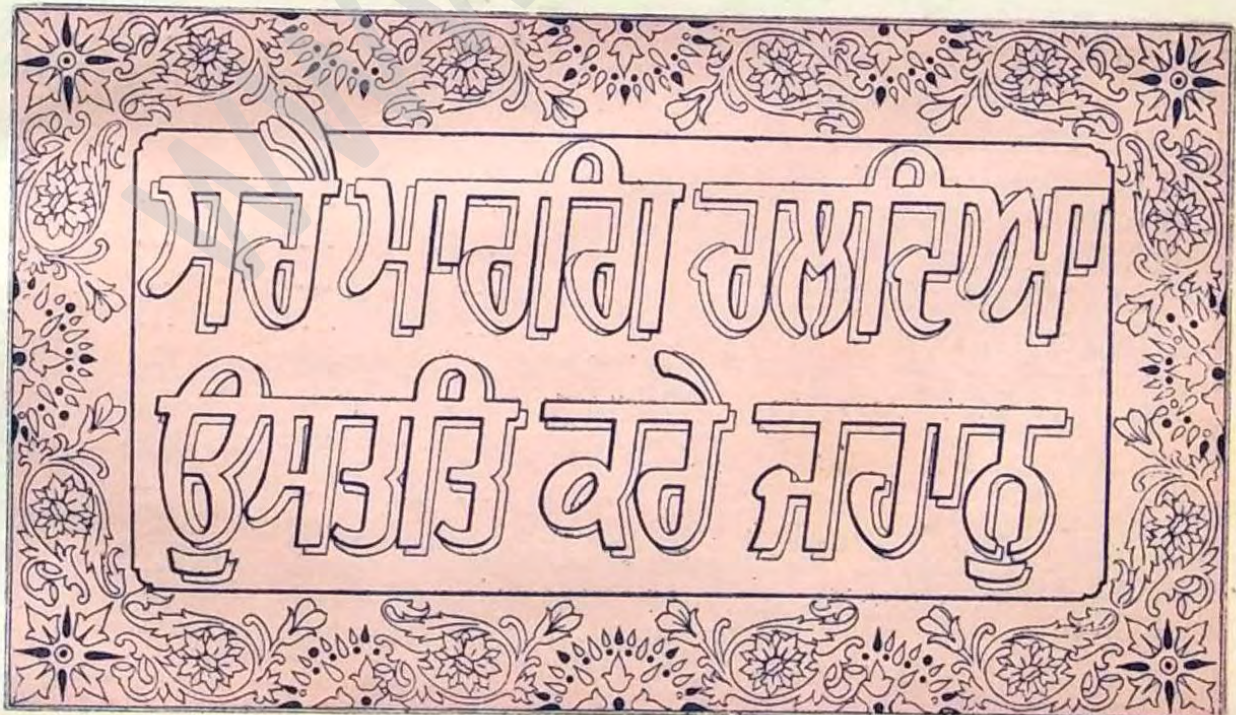 ਸਚੈ ਮਾਰਗਿ ਚਲਦਿਆ
ਉਸਤਤਿ ਕਰੇ ਜਹਾਨੁ